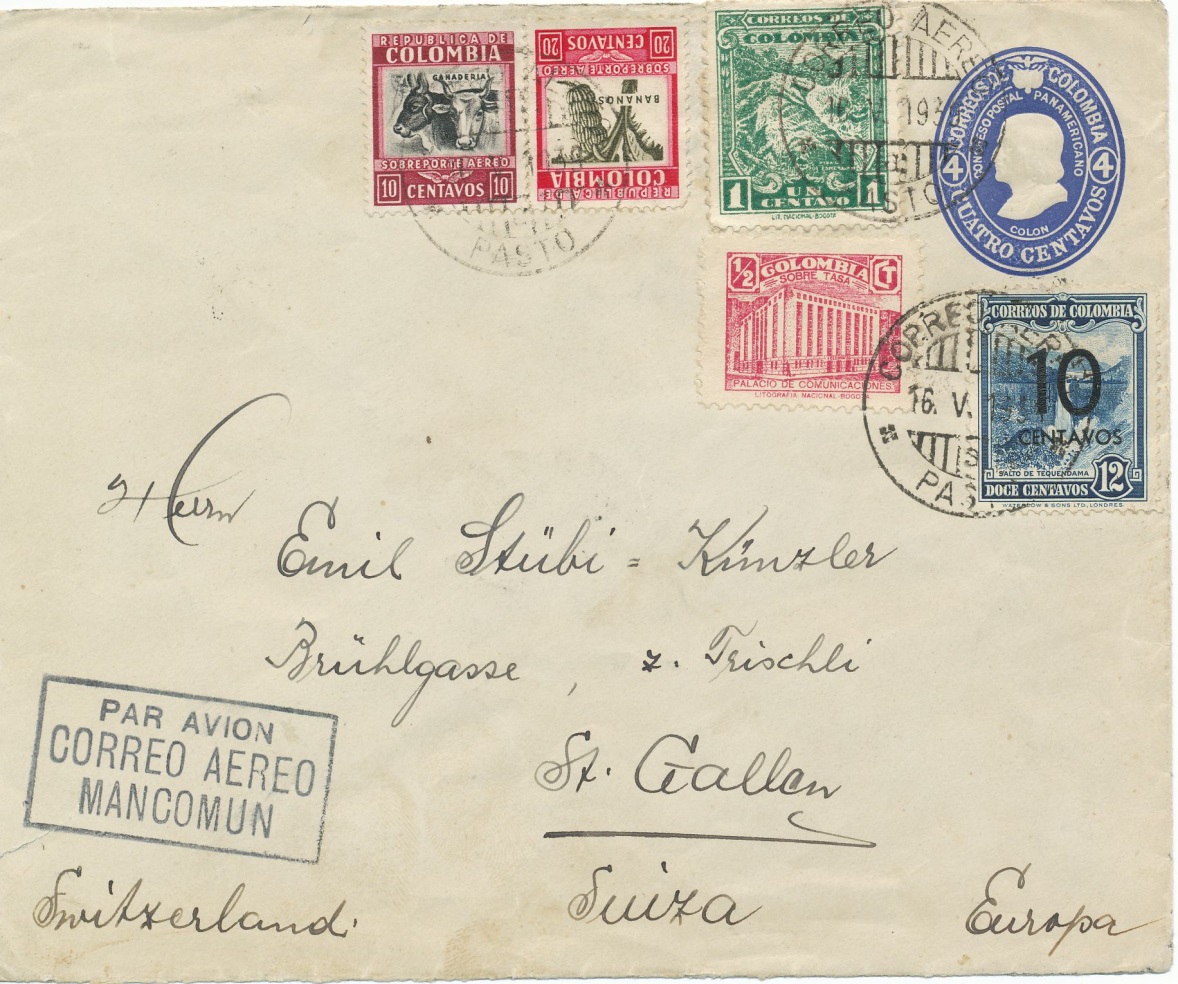 REPUBLICA DE
COLOMBIA
GANADERIA
SOBREPORTE AEREO
10 CENTAVOS 10
REPUBLICA DE
COLOMBIA
BANANOS
SOBREPORTE AEREO
20 CENTAVOS 20
PASTO
CORREOS DE
COLOMBIA
1 UN CENTAVO 1
LIT. NACIONAL-BOGOTA
CORREOS DE COLOMBIA
CONGRESO POSTAL PANAMERICANO
4 4
COLON
CUATRO CENTAVOS
1/2 COLOMBIA CT
SOBRE TASA
PALACIO DE COMUNICACIONES
LITOGRAFIA NACIONAL-BOGOTA
16. V.
CORREOS DE COLOMBIA
10
CENTAVOS
SALTO DE TEQUENDAMA
DOCE CENTAVOS 12
WATERLOW & SONS LTD., LONDRES.
Herrn
Emil Stübi = Künzler
Brühlgasse, z. Trischli
St. Gallen
PAR AVION
CORREO AEREO
MANCOMUN
Switzerland.
Suiza
Europa